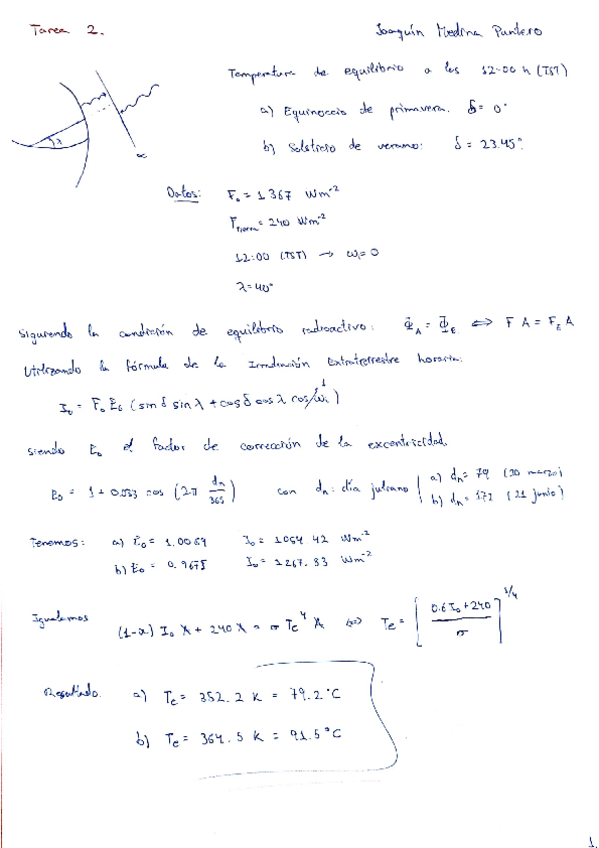 Tarea 2.
Joaquín Medina Puntero
Temperatura de equilibrio a las 12:00 h (TST)
a) Equinoccio de primavera. δ = 0°
b) Solsticio de verano: δ = 23.45°
λ
α
Datos: F₀ = 1367 Wm⁻²
F_Tierra = 240 Wm⁻²
12:00 (TST) → ωᵢ = 0
λ = 40°
Siguiendo la condición de equilibrio radiactivo: Φ_A = Φ_E ⟺ F A = F_E A
Utilizando la fórmula de la Irradiación extraterrestre horaria:
I₀ = F₀ E₀ (sin δ sin λ + cos δ cos λ cos ωᵢ) 1
siendo E₀ el factor de corrección de la excentricidad.
E₀ = 1 + 0.033 cos (2π dn/365) con dn: día juliano
a) dn = 79 (20 marzo)
b) dn = 172 (21 junio)
Tenemos: a) E₀ = 1.0069 I₀ = 1054.42 Wm⁻²
b) E₀ = 0.9675 I₀ = 1267.83 Wm⁻²
Igualamos (1-α) I₀ A + 240 A = σ Te⁴ A ⟺ Te = [(0.6 I₀ + 240)/σ]^1/4
Resultado. a) Te = 352.2 K = 79.2 °C
b) Te = 364.5 K = 91.5 °C
1.